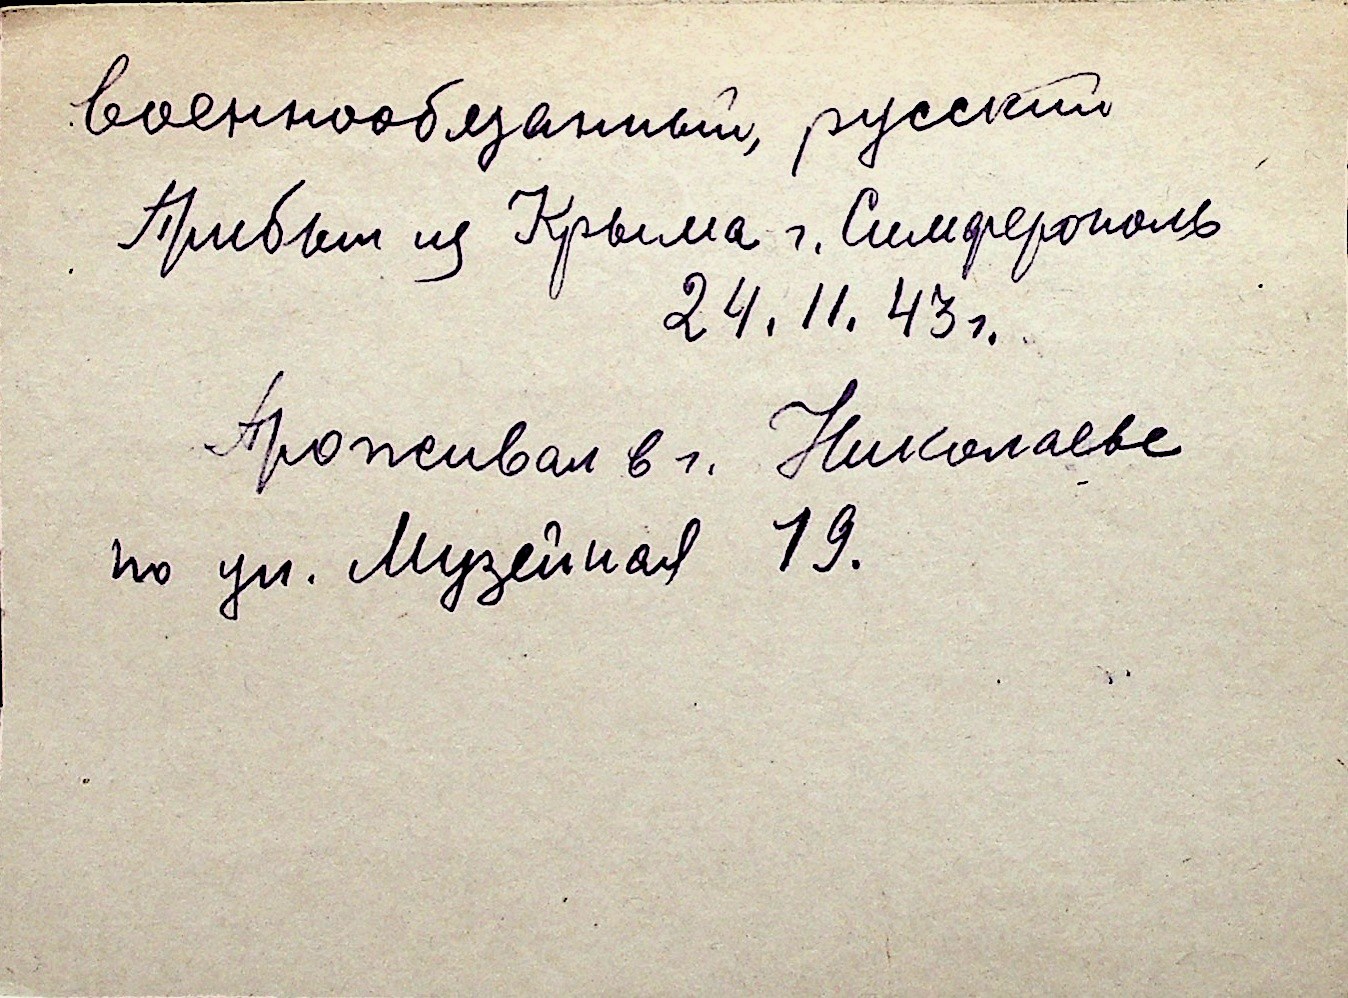 военнообязанный, русский
Прибыл из Крыма г. Симферополь
24. 11. 43 г.
Проживал в г. Николаеве
по ул. Музейная 19.